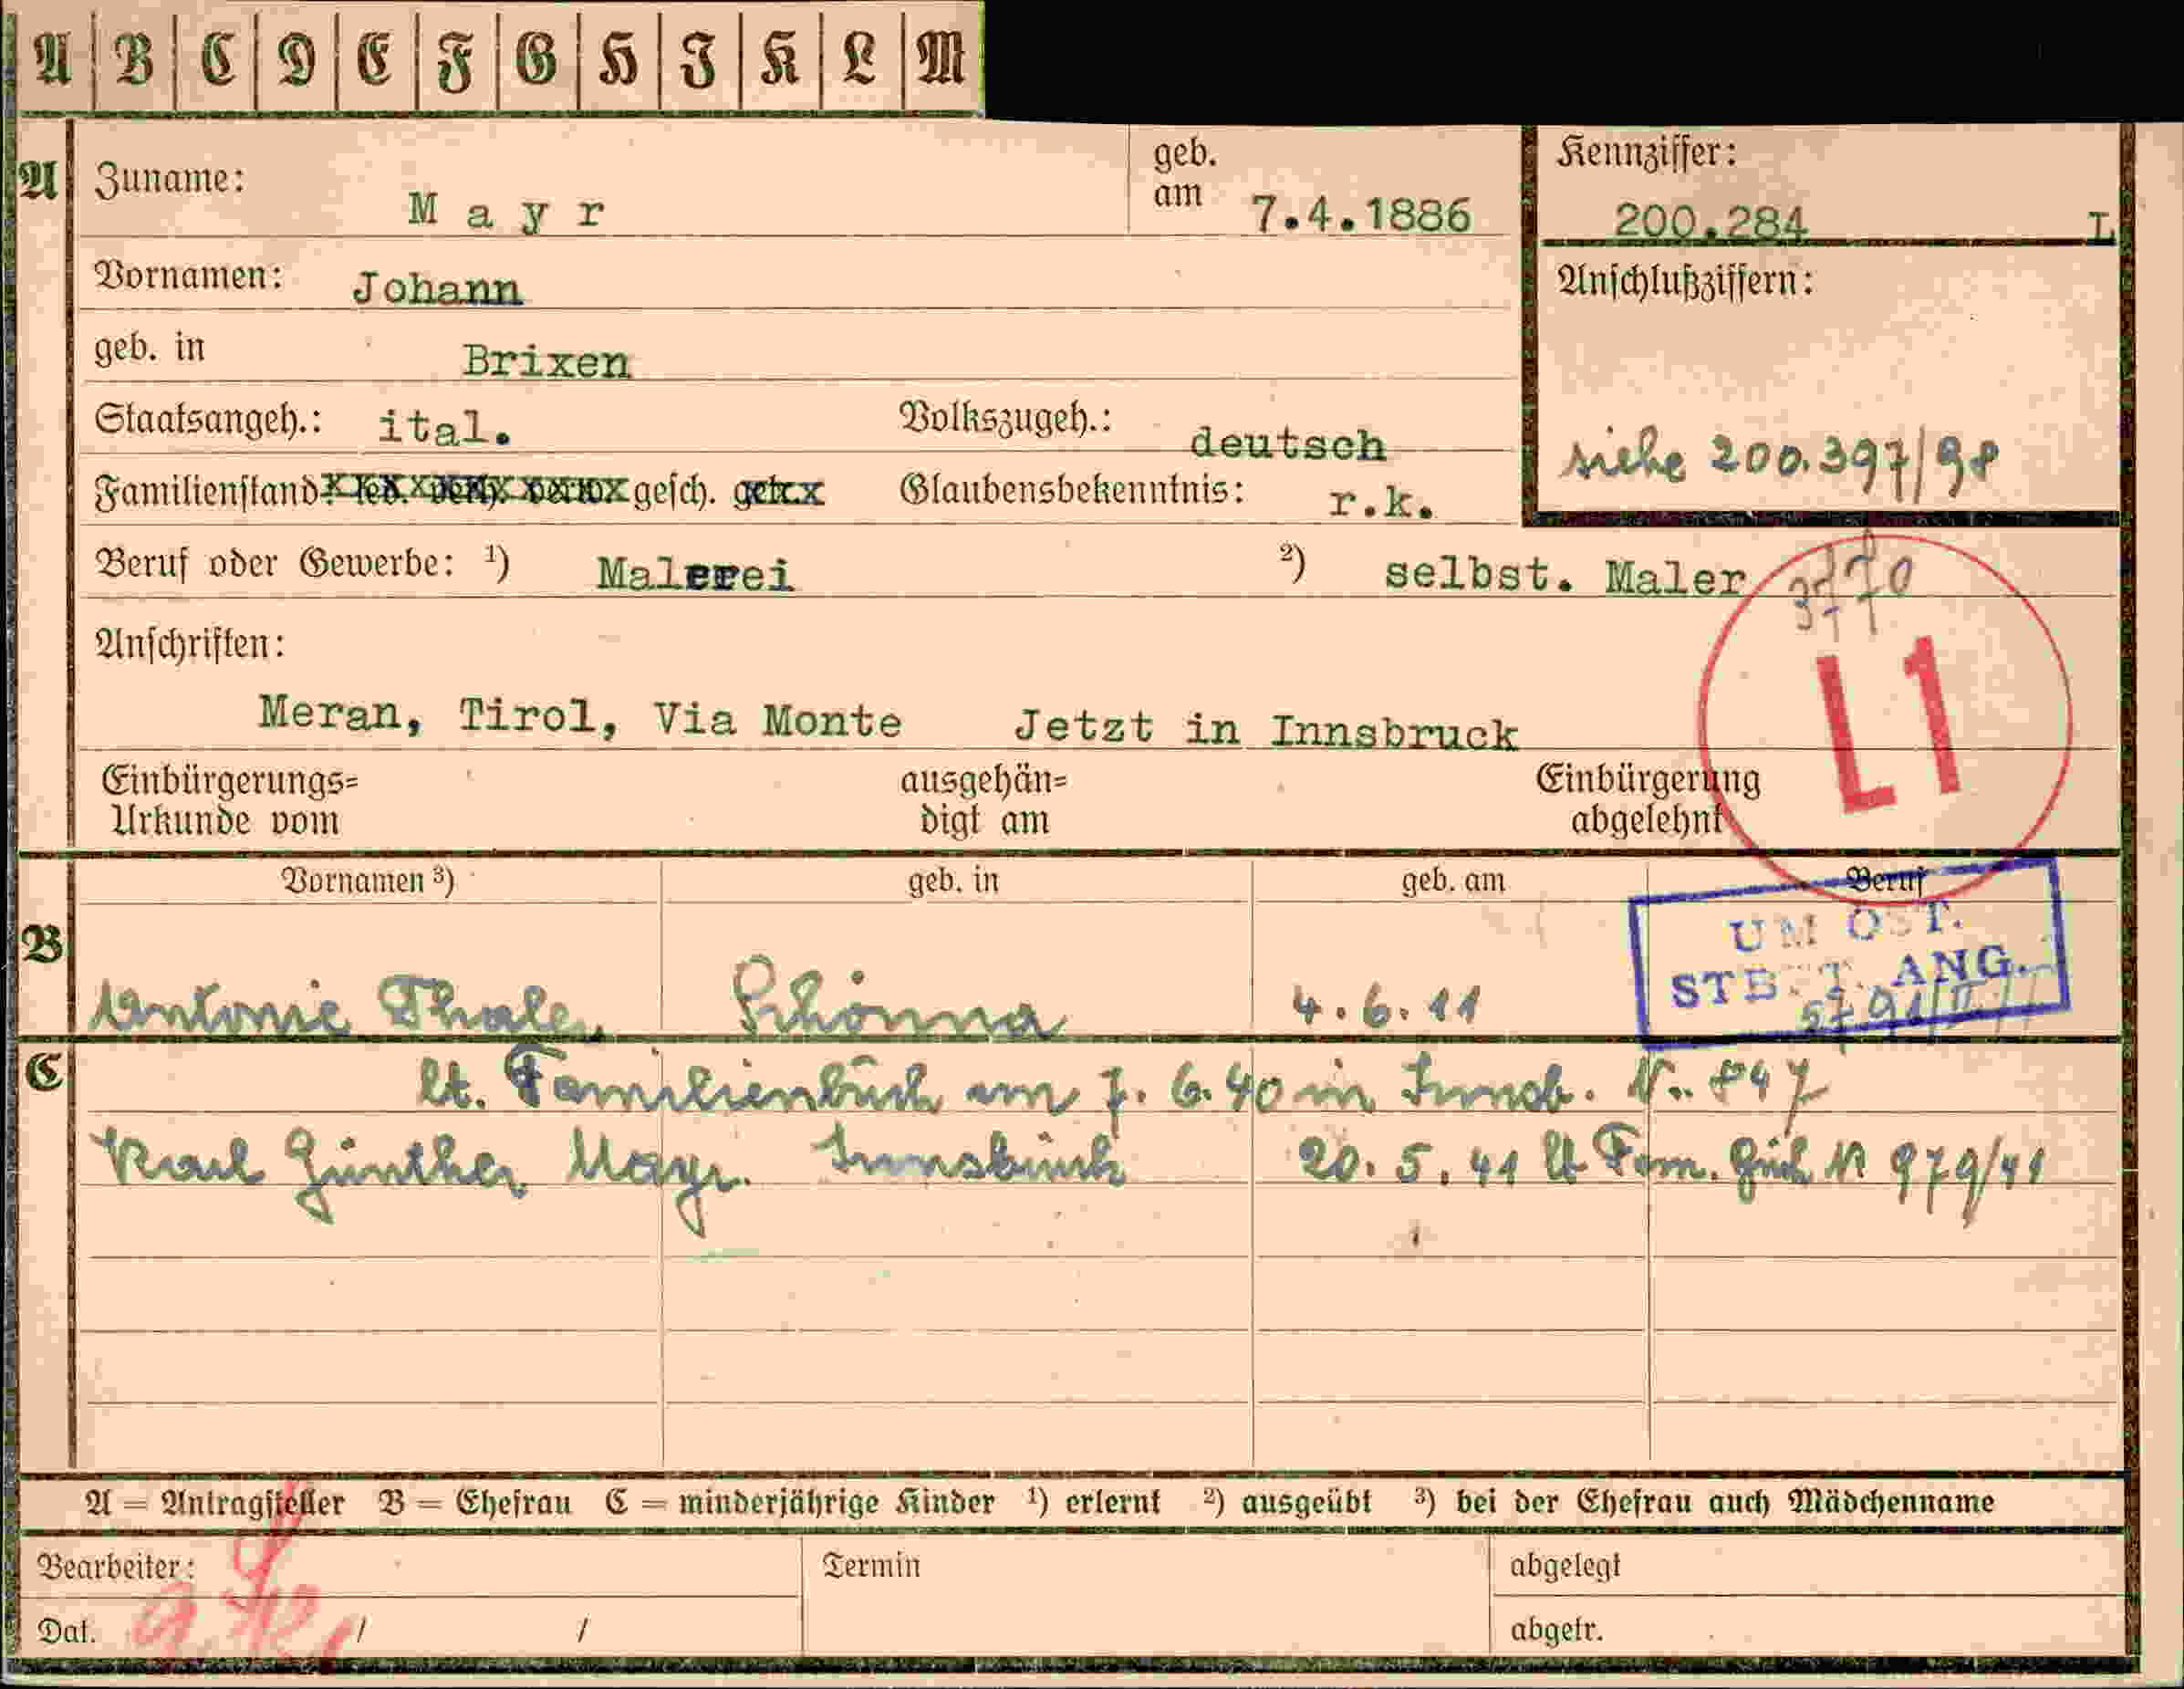 A B C D E F G H I K L M
A Zuname: Mayr geb. am 7.4.1886 Kennziffer: 200.284 L
Vornamen: Johann Anschlußziffern:
geb. in Brixen
Staatsangeh.: ital. Volkszugeh.: deutsch siehe 200.397/98
Familienstand: led. gesch. getr. Glaubensbekenntnis: r.k.
Beruf oder Gewerbe: 1) Malerei 2) selbst. Maler
Anschriften: L1
Meran, Tirol, Via Monte Jetzt in Innsbruck
Einbürgerungs= ausgehän= Einbürgerung
Urkunde vom digt am abgelehnt
Vornamen 3) geb. in geb. am Beruf
B UM ÖST.
Antonie Thaler Schönna 4.6.11 ANG.
C lt. Familienbuch am 7.6.40 in Innsb. Nr. 847
Karl Günther Mayr. Innsbruck 20.5.41 lt Fam. Buch Nr 979/41
A = Antragsteller B = Ehefrau C = minderjährige Kinder 1) erlernt 2) ausgeübt 3) bei der Ehefrau auch Mädchenname
Bearbeiter: Termin abgelegt
Dat. / / abgetr.